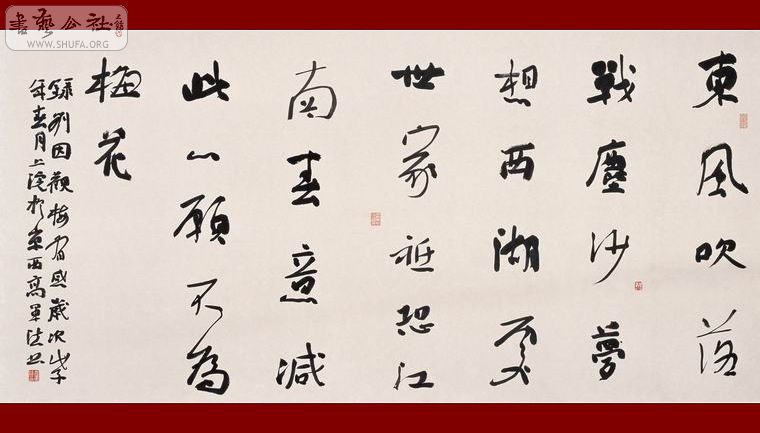 書藝公社
WWW.SHUFA.ORG
東風吹落
戰塵沙夢
想西湖處
世家祗恐江
南春意減
此心願不為
梅花
錄刘因觀梅有感歲次戊子
年春月上浣於京西高軍法書